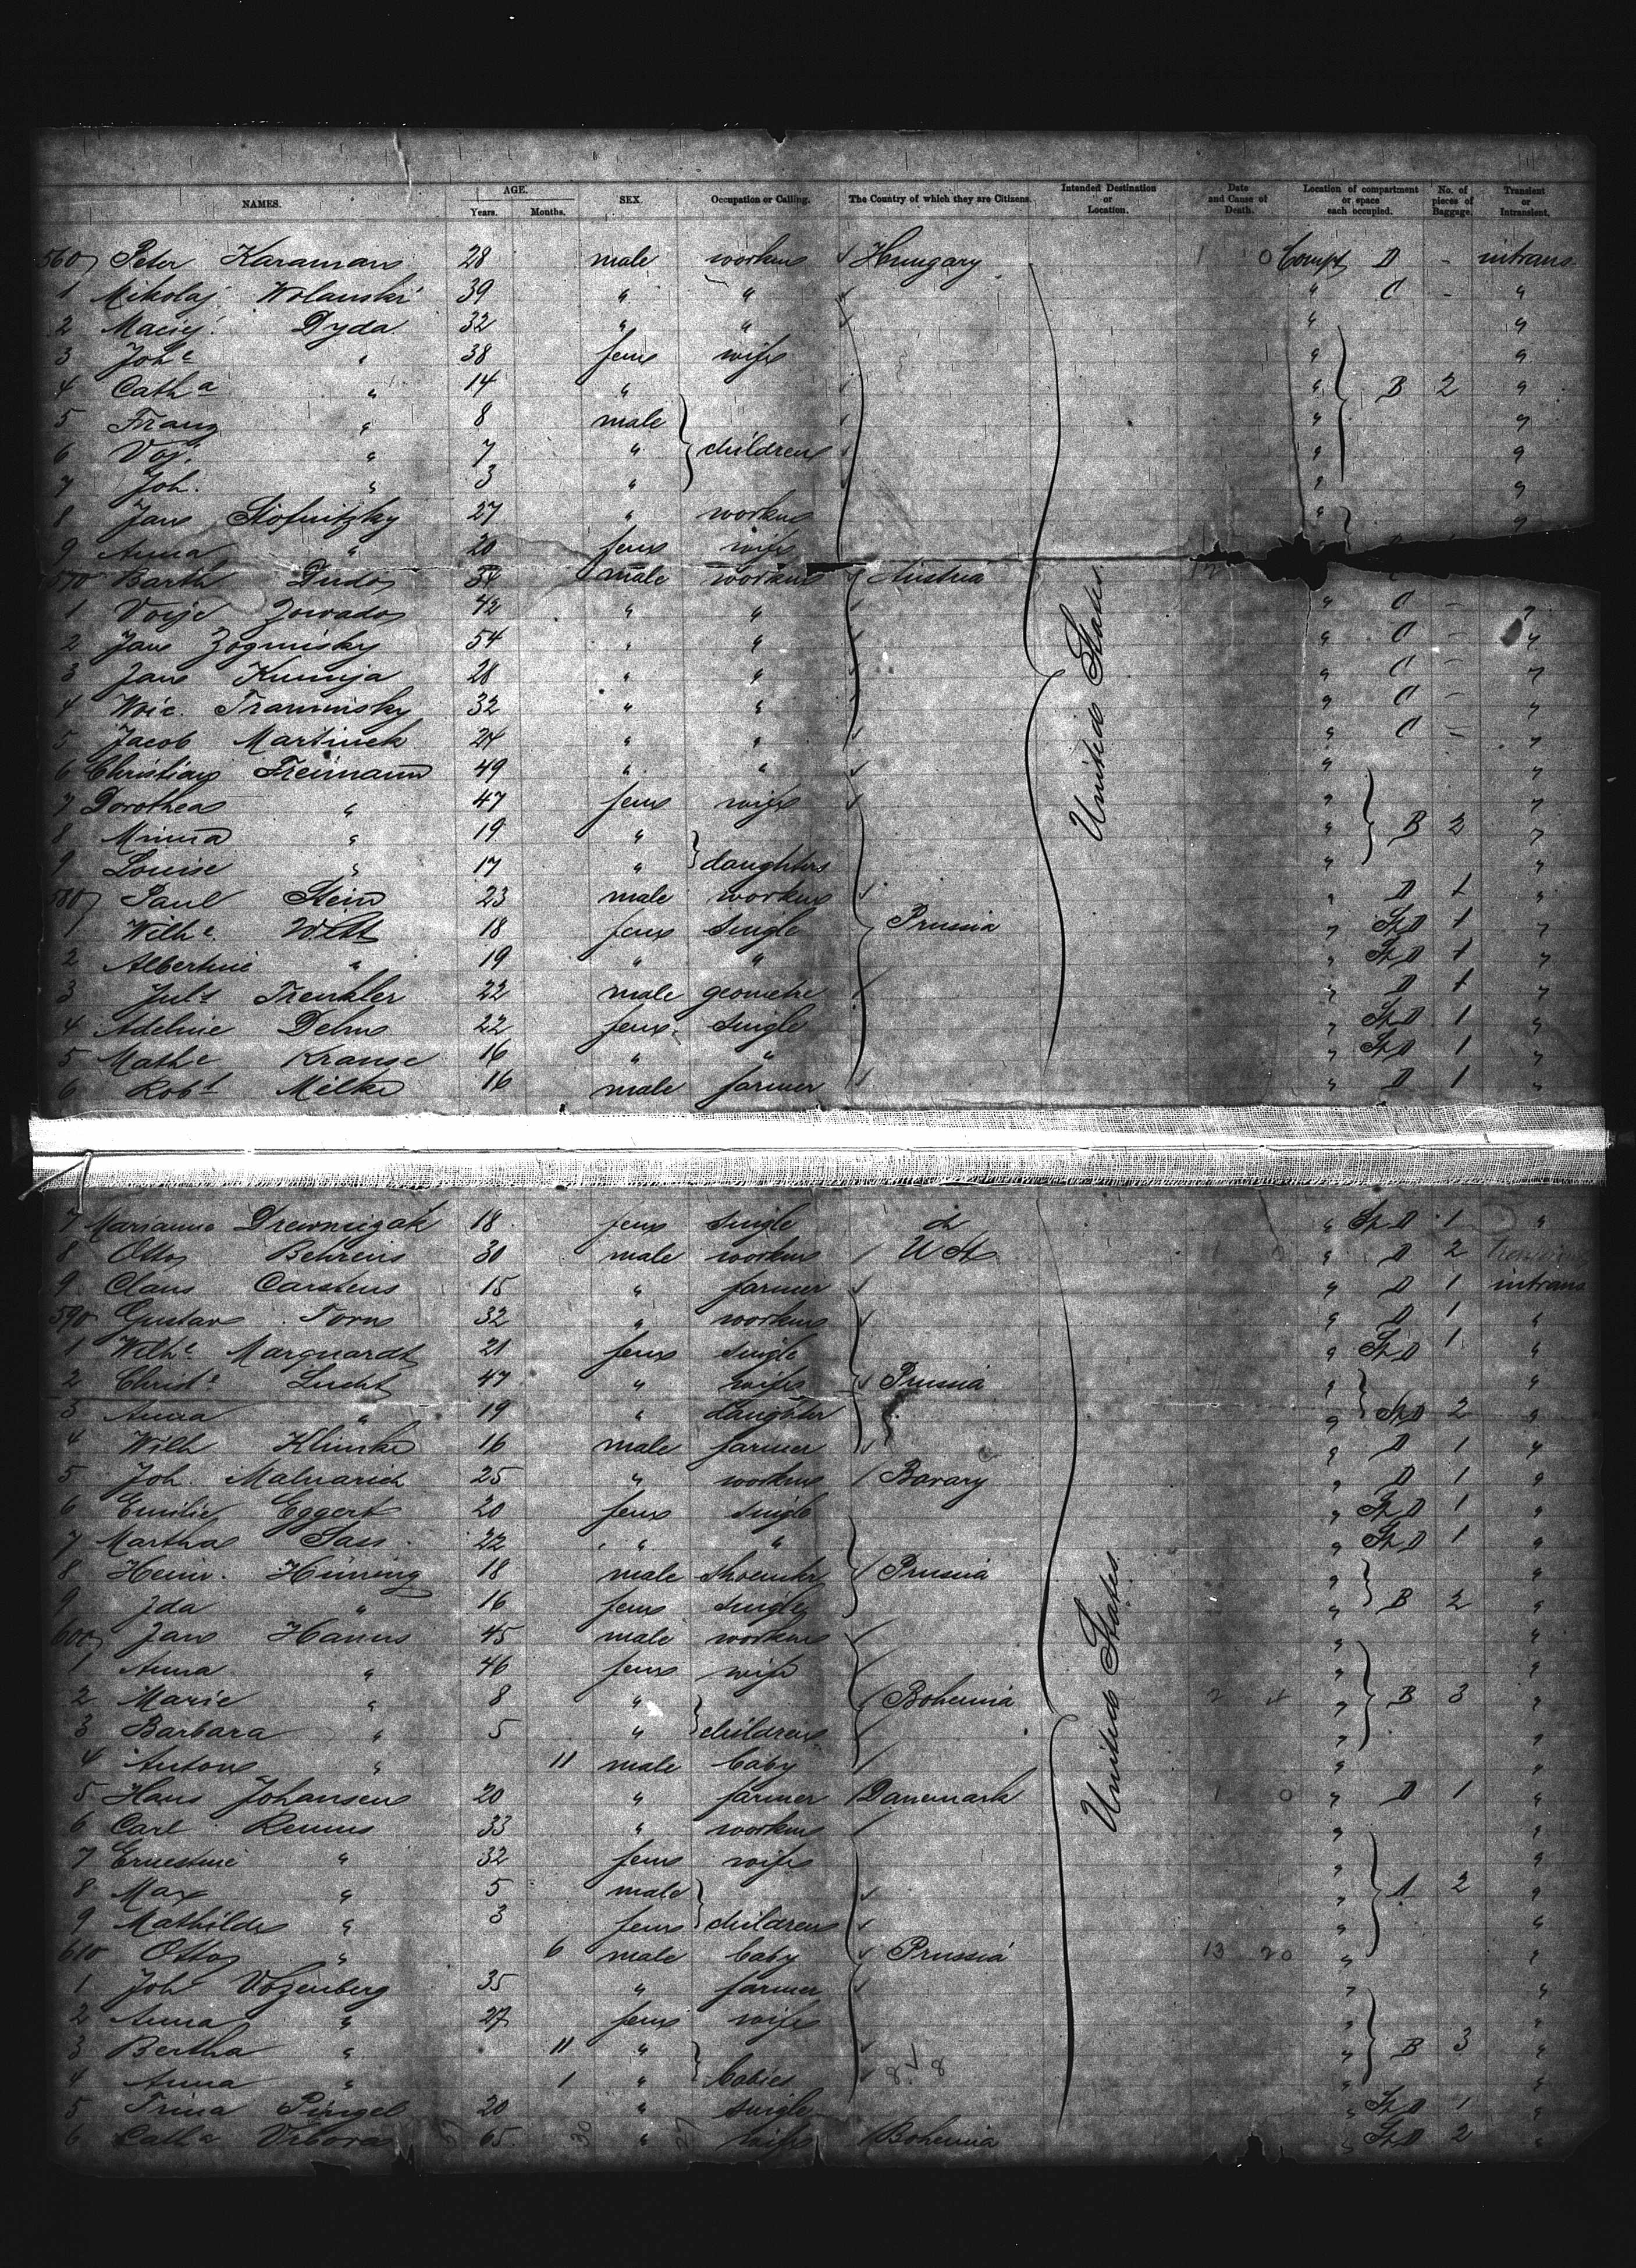 NAMES. AGE. Years. Months. SEX. Occupation or Calling. The Country of which they are Citizens. Intended Destination or Location. Date and Cause of Death. Location of compartment or space each occupied. No. of pieces of Baggage. Transient or Intransient.
560 Peter Karaman 28 male workm Hungary 1 0 Compt D - intrans
1 Mikolaj Wolanski 39 " " " C - "
2 Maciej Dyda 32 " " " "
3 Joh<sup>e</sup> " 38 fem wife " "
4 Cath<sup>a</sup> " 14 " " B 2 "
5 Franz " 8 male " "
6 Voj. " 7 " children " "
7 Joh. " 3 " " "
8 Jan Stofnitzky 27 " workm " "
9 Anna " 20 fem wife
570 Barth Dudo male workm Austria
1 Voije Zowado 42 " " " C - "
2 Jan Zogminsky 54 " " " C - "
3 Jan Kumija 28 " " " C - "
4 Woic. Traminsky 32 " " " C - "
5 Jacob Martinek 24 " " " C - "
6 Christian Freimann 49 " " " "
7 Dorothea " 47 fem wife " "
8 Minna " 19 " " B 2 "
9 Louise " 17 " daughters " "
580 Paul Stein 23 male workm " D 1 "
1 Wilh<sup>e</sup>. Witt 18 fem single Prussia " D 1 "
2 Albertine " 19 " " " D 1 "
3 Jul<sup>s</sup> Trenkler 22 male geometre " D 1 "
4 Adeline Delm 22 fem single " D 1 "
5 Math<sup>e</sup> Krause 16 " " " D 1 "
6 Rob<sup>t</sup> Milke 16 male farmer " D 1 "
United States.
7 Marianna Drewniczak 18 fem single " D 1 "
8 Otto Behrens 30 male workm U St " D 2
9 Claus Carstens 15 " farmer " D 1 intrans
590 Gustav Torn 32 " workm " D 1 "
1 Wilh<sup>e</sup> Marquardt 21 fem single " D 1 "
2 Christ<sup>e</sup> Lucht 47 " wife Prussia " "
3 Anna " 19 " daughter " D 2 "
4 Wilh Klimke 16 male farmer " D 1 "
5 Joh. Malnarich 25 " workm Bavary " D 1 "
6 Emilie Eggert 20 fem single " D 1 "
7 Martha Sass 22 " " " D 1 "
8 Heinr. Hüning 18 male shoemkr Prussia " "
9 Ida " 16 fem single " B 2 "
600 Jan Hanus 45 male workm " "
1 Anna " 46 fem wife " "
2 Marie " 8 " Bohemia 2 4 " B 3 "
3 Barbara " 5 " children " "
4 Anton " 11 male baby " "
5 Hans Johansen 20 " farmer Danemark 1 0 " D 1 "
6 Carl Remus 33 " workm " "
7 Ernestine " 32 fem wife " "
8 Max " 5 male " A 2 "
9 Mathilde " 3 fem children " "
610 Otto " 6 male baby Prussia 13 20 " "
1 Joh Vozenberg 35 " farmer " "
2 Anna " 27 fem wife " "
3 Bertha " 11 " " B 3 "
4 Anna " 1 " babies " "
5 Trina Pingel 20 " single " D 1 "
6 Cath<sup>a</sup> Vrbova 65 " wife Bohemia " D 2 "
United States.